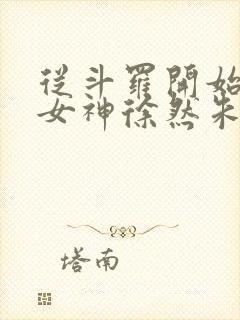 從斗羅開始
女神徐然朱
塔南